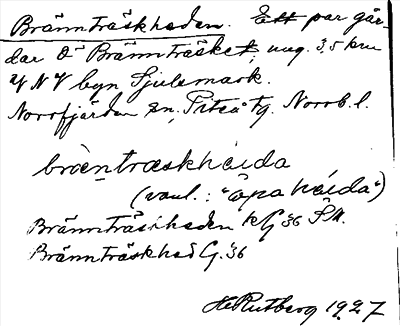 Brännträskheden. Ett par går-
dar O Brännträsket, ung. 3,5 km
V N V byn Sjulsmark.
Norrfjärden sn, Piteå tg. Norrb. l.
bræntræskhèida
(vanl.: "òpa hèida")
Brännträskheden kG '36
Brännträskhed G. '36
H Rutberg 1927